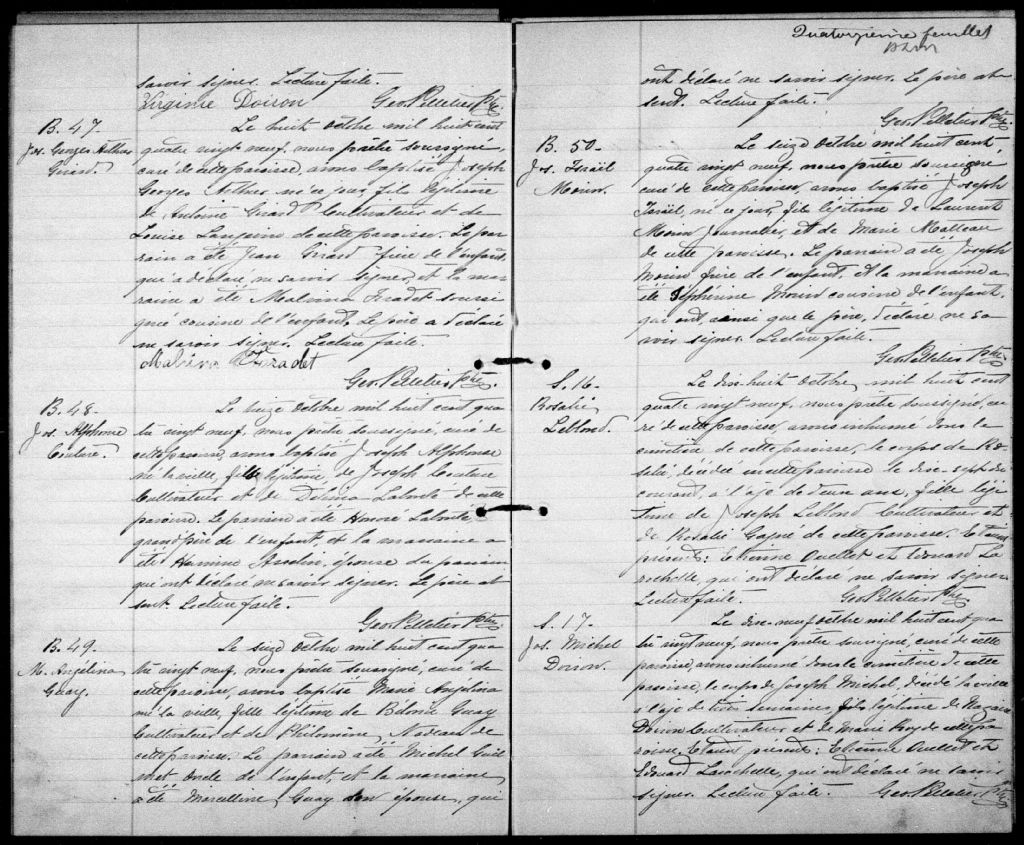 savoir signer. Lecture faite.
Virginie Doiron Geo. Pelletier Ptre
B. 47.
Jos. Georges Arthur
Girard.
Le huit Octbre mil huit cent
quatre vingt neuf, nous prêtre soussigné
curé de cette paroisse, avons baptisé Joseph
Georges Arthur né ce jour, fils légitime
de Antoine Girard Cultivateur et de
Louise Langevin de cette paroisse. Le par
rain a été Jean Girard frère de l'enfant
qui a déclaré ne savoir signer, et la mar
raine a été Malvina Fradet soussi
gnée cousine de l'enfant. Le père a déclaré
ne savoir signer. Lecture faite.
Malvina Fradet
Geo. Pelletier Ptre
B. 48.
Jos. Alphonse
Couture.
Le seize Octbre mil huit cent qua
tre vingt neuf, nous prêtre soussigné, curé de
cette paroisse, avons baptisé Joseph Alphonse
né la veille, fils légitime, de Joseph Couture
Cultivateur et de Délina Labonté de cette
paroisse. Le parrain a été Honoré Labonté,
grand père de l'enfant et la marraine a
été Hermine Asselin, épouse du parrain
qui ont déclaré ne savoir signer. Le père ab
sent. Lecture faite.
Geo. Pelletier Ptre
B. 49.
M. Angélina
Guay.
Le seize Octbre mil huit cent qua
tre vingt neuf, nous prêtre soussigné, curé de
cette paroisse, avons baptisé Marie Angélina
née la veille, fille légitime de Guay
Cultivateur et de Philomène Nadeau de
cette paroisse. Le parrain a été Michel Guil
met oncle de l'enfant, et la marraine
a été Marcelline Guay son épouse, qui
Quatorzième feuillet
ont déclaré ne savoir signer. Le père ab
sent. Lecture faite.
Geo. Pelletier Ptre
B. 50.
Jos. Israël
Morin.
Le seize Octbre mil huit cent
quatre vingt neuf, nous prêtre soussigné
curé de cette paroisse, avons baptisé Joseph
Israël, né ce jour, fils légitime de Laurent
Morin Journalier, et de Marie Malteau
de cette paroisse. Le parrain a été Joseph
Morin frère de l'enfant, et la marraine a
été Séphérine Morin cousine de l'enfant,
qui ont, ainsi que le père, déclaré ne sa
voir signer. Lecture faite.
Geo. Pelletier Ptre
S. 16.
Rosalie
Leblond.
Le dix-huit Octobre, mil huit cent
quatre vingt neuf, nous prêtre soussigné, cu
ré de cette paroisse, avons inhumé dans le
cimetière de cette paroisse, le corps de Ro
salie, décédée en cette paroisse le dix-sept du
courant, à l'âge de deux ans, fille légi
time de Joseph Leblond Cultivateur et
de Rosalie Gagné de cette paroisse. Etaient
présents: Etienne Ouellet et Edouard La
rochelle, qui ont déclaré ne savoir signer.
Lecture faite. Geo. Pelletier Ptre
S. 17.
Jos. Michel
Doiron.
Le dix-neuf Octbre mil huit cent qua
tre vingt neuf, nous prêtre soussigné, curé de cette
paroisse, avons inhumé dans le cimetière de cette
paroisse, le corps de Joseph Michel, décédé la veille
à l'âge de trois semaines, fils légitime de Nazaire
Doiron Cultivateur et de Marie Roy de cette pa
roisse. Etaient présents: Etienne Ouellet et
Edouard Larochelle, qui ont déclaré ne savoir
signer. Lecture faite. Geo. Pelletier Ptre